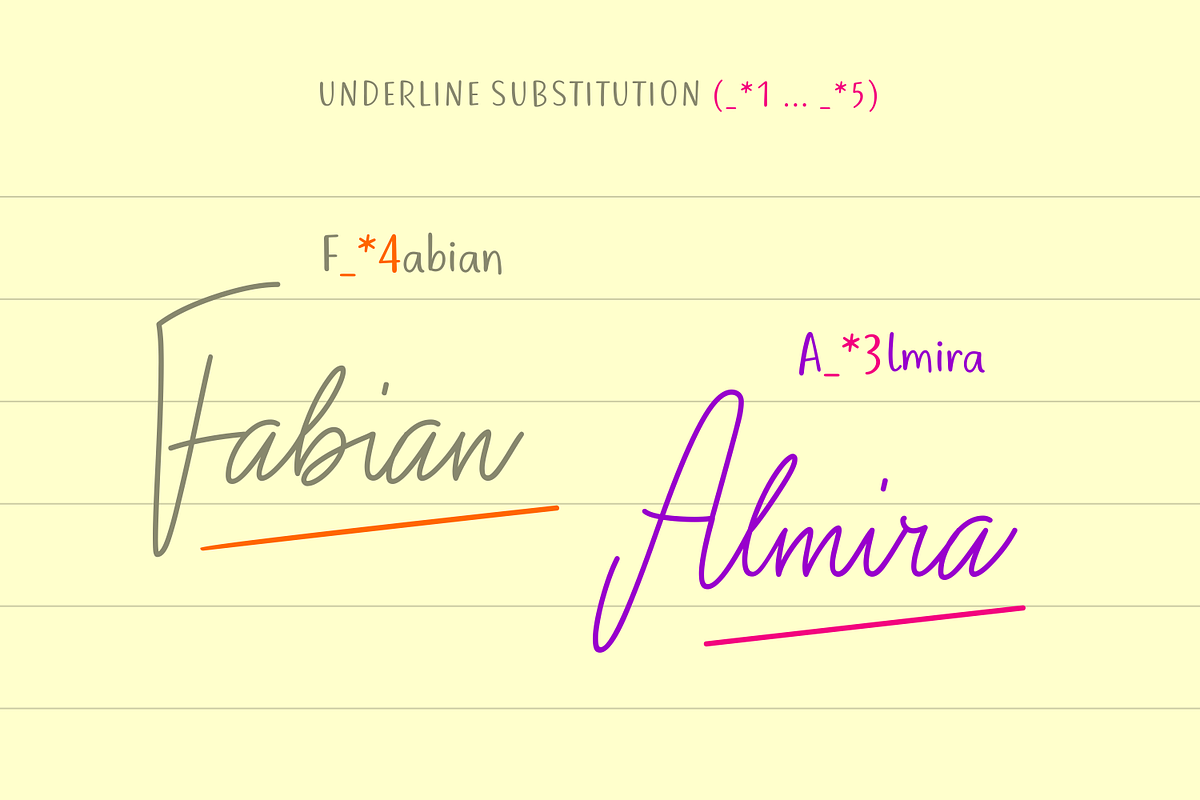 UNDERLINE SUBSTITUTION (_*1 ... _*5)
F_*4abian
Fabian
A_*3lmira
Almira